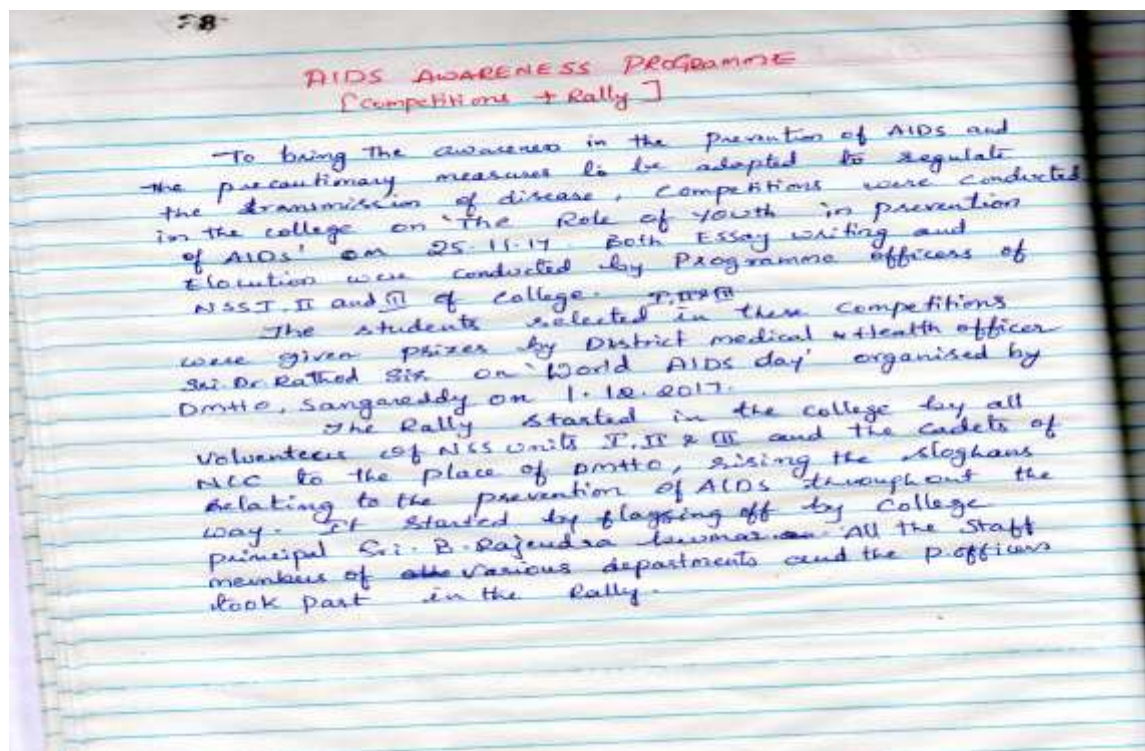 58
AIDS AWARENESS PROGRAMME
[Competitions + Rally]
To bring The awareness in the prevention of AIDs and
the precautionary measures to be adapted to regulate
the transmission of disease, Competitions were conducted
in the college on 'The Role of Youth in prevention
of AIDs' on 25.11.17. Both Essay writing and
Elocution were conducted by Programme officers of
NSS I, II and III of College.
The students selected in these competitions I, II & III
were given prizes by District medical & Health officer
Sri Dr. Rathod Sir on 'World AIDS day' organised by
DMHO, Sangareddy on 1.12.2017.
The Rally started in the college by all
Volunteers of NSS units I, II & III and the cadets of
NCC to the place of DMHO, rising the sloghans
relating to the prevention of AIDs throughout the
way. It started by flagging off by College
principal Sri. B. Rajendra kumar. All the Staff
members of various departments and the p.officers
took part in the Rally.